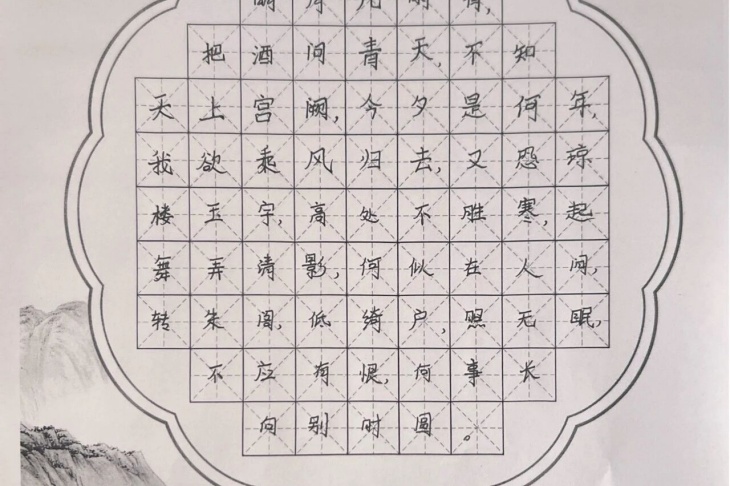 明月几时有,
把酒问青天,不知
天上宫阙,今夕是何年,
我欲乘风归去,又恐琼
楼玉宇,高处不胜寒,起
舞弄清影,何似在人间,
转朱阁,低绮户,照无眠,
不应有恨,何事长
向别时圆。